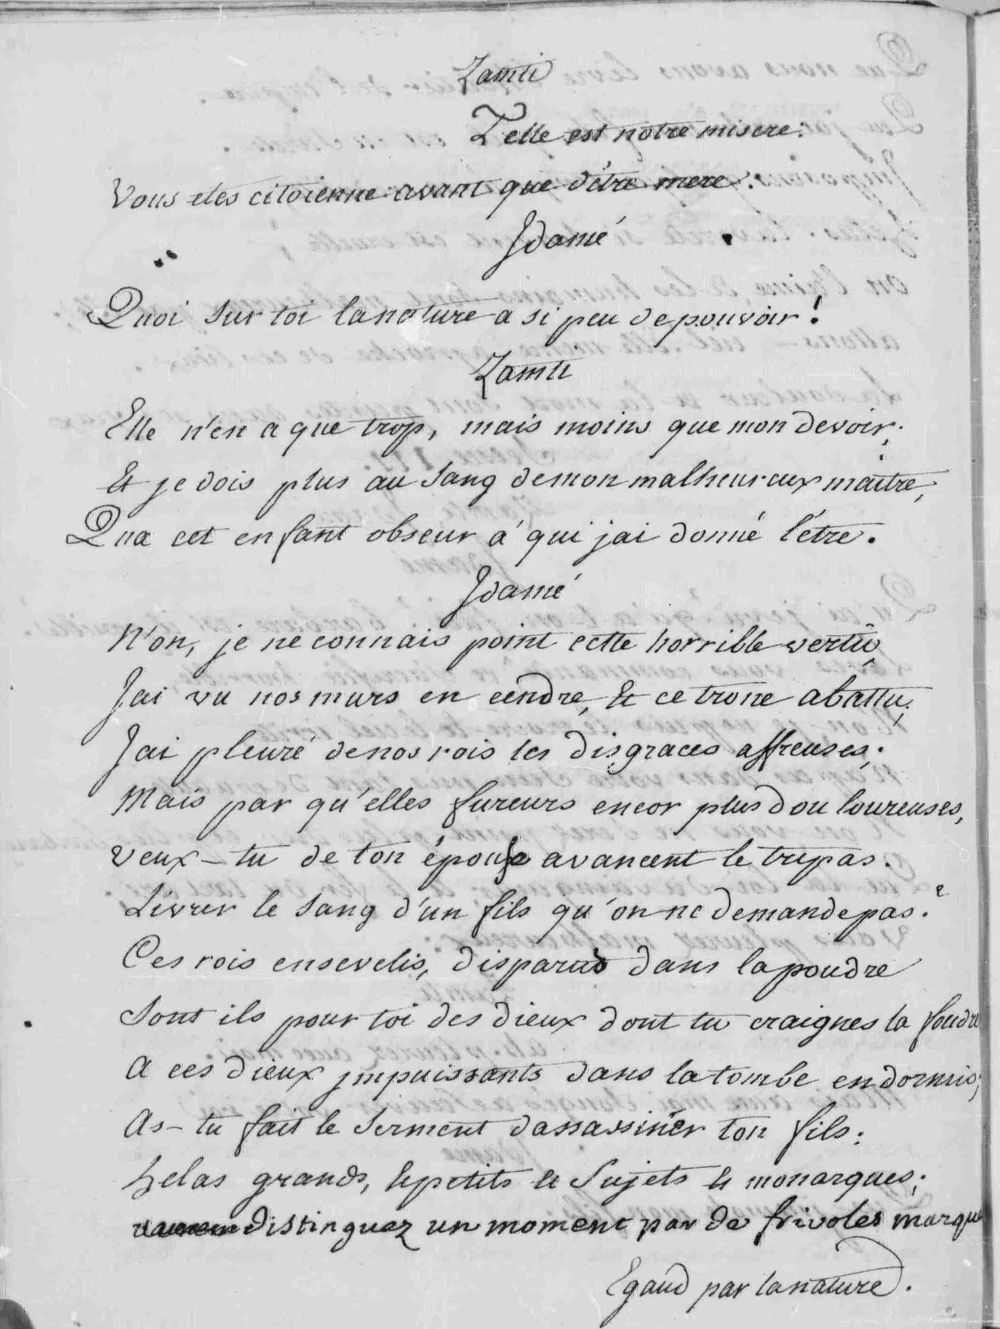 Zamti
Telle est notre misere.
Vous etes citoienne avant que d'être mere.
Idamé
Quoi sur toi la nature a si peu de pouvoir!
Zamti
Elle n'en a que trop, mais moins que mon devoir;
Et je dois plus au sang de mon malheureux maitre,
Qua cet enfant obscur á qui jai donné l'être.
Idamé
N'on, je ne connais point cette horrible vertu
Jai vu nos murs en cendre, et ce trone abattu,
Jai pleuré de nos rois les disgraces affreuses;
Mais par qu'elles fureurs encor plus doulourεuses,
veux-tu de ton épouse avancent le trepas.
Livrer le sang d'un fils qu'on ne demande pas.?
Ces rois ensevelis, disparus dans la poudre
Sont ils pour toi des dieux dont tu craignes la foudre
A ces dieux jmpuissants dans la tombe endormis;
As-tu fait le serment dassassinér ton fils:
helas grands, et petits et sujets et monarques;
distinguez un moment par de frivoles marques
Egaud par la nature.